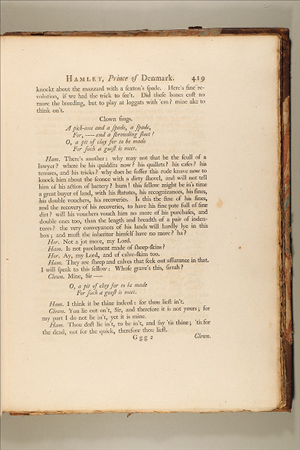 HAMLET, Prince of Denmark. 419
knockt about the mazzard with a sexton's spade. Here's fine re-
volution, if we had the trick to see't. Did these bones cost no
more the breeding, but to play at loggats with 'em? mine ake to
think on't.
Clown sings.
A pick-axe and a spade, a spade,
For, —— and a shrowding sheet!
O, a pit of clay for to be made
For such a guest is meet.
Ham. There's another: why may not that be the scull of a
lawyer? where be his quiddits now? his quillets? his cases? his
tenures, and his tricks? why does he suffer this rude knave now to
knock him about the sconce with a dirty shovel, and will not tell
him of his action of battery? hum! this fellow might be in's time
a great buyer of land, with his statutes, his recognizances, his fines,
his double vouchers, his recoveries. Is this the fine of his fines,
and the recovery of his recoveries, to have his fine pate full of fine
dirt? will his vouchers vouch him no more of his purchases, and
double ones too, than the length and breadth of a pair of inden-
tures? the very conveyances of his lands will hardly lye in this
box; and must the inheritor himself have no more? ha?
Hor. Not a jot more, my Lord.
Ham. Is not parchment made of sheep-skins?
Hor. Ay, my Lord, and of calve-skins too.
Ham. They are sheep and calves that seek out assurance in that.
I will speak to this fellow: Whose grave's this, sirrah?
Clown. Mine, Sir ——
O, a pit of clay for to be made
For such a guest is meet.
Ham. I think it be thine indeed: for thou liest in't.
Clown. You lie out on't, Sir, and therefore it is not yours; for
my part I do not lie in't, yet it is mine.
Ham. Thou dost lie in't, to be in't, and say 'tis thine; 'tis for
the dead, not for the quick, therefore thou liest.
G g g 2 Clown.